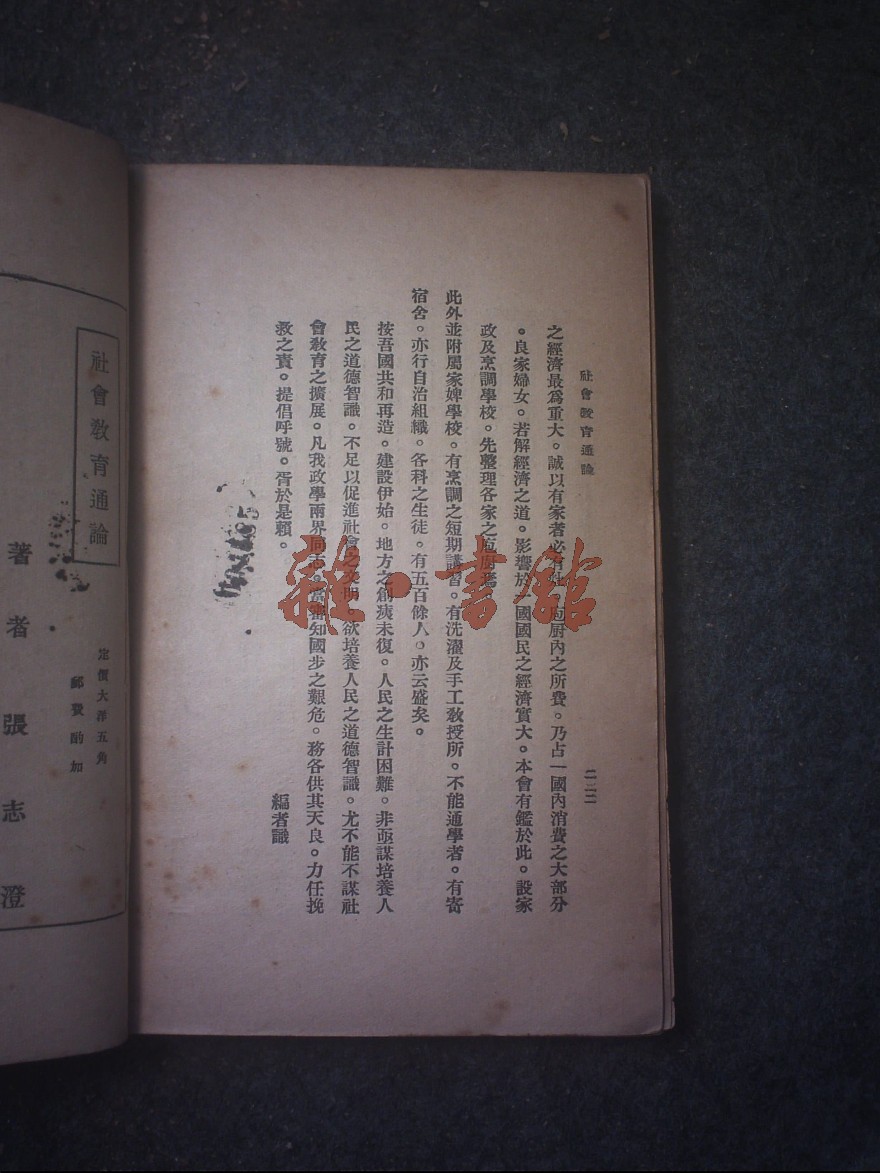 社會敎育通論
一二二
之經濟最爲重大。誠以有家者必有灶。庖厨內之所費。乃占一國內消費之大部分
。良家婦女。若解經濟之道。影響於一國國民之經濟實大。本會有鑑於此。設家
政及烹調學校。先整理各家之庖厨焉。
此外並附屬家婢學校。有烹調之短期講習。有洗濯及手工敎授所。不能通學者。有寄
宿舍。亦行自治組織。各科之生徒。有五百餘人。亦云盛矣。
按吾國共和再造。建設伊始。地方之創痍未復。人民之生計困難。非亟謀培養人
民之道德智識。不足以促進社會之文明。欲培養人民之道德智識。尤不能不謀社
會敎育之擴展。凡我政學兩界同志。當審知國步之艱危。務各供其天良。力任挽
救之責。提倡呼號。胥於是賴。
編者識
雜·書館
社會敎育通論
定價大洋五角
郵費酌加
著者張志澄